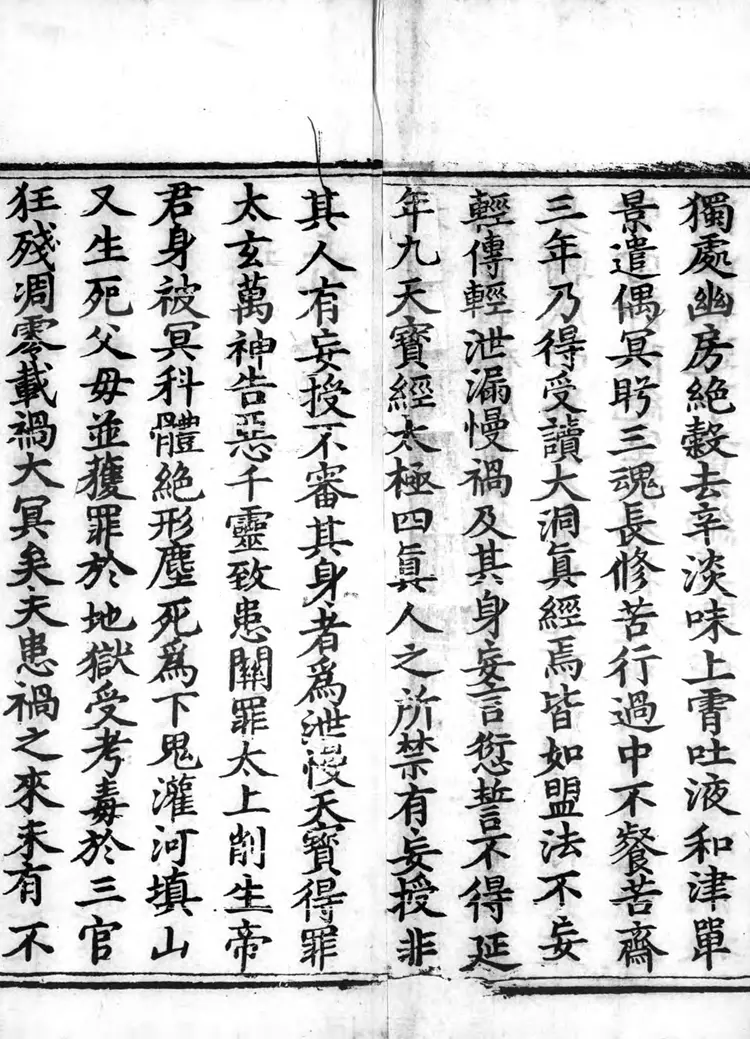 獨處幽房絶穀去辛淡味上霄吐液和津單
景遣偶冥眄三魂長修苦行過中不餐苦齋
三年乃得受讀大洞眞經焉皆如盟法不妄
輕傳輕泄漏慢禍及其身妄言愆誓不得延
年九天寶經太極四眞人之所禁有妄授非
其人有妄授不審其身者爲泄慢天寶得罪
太玄萬神告惡千靈致患關罪太上削生帝
君身被冥科體絶形塵死爲下鬼灌河填山
又生死父母並獲罪於地獄受考毒於三官
狂殘凋零載禍大冥矣夫患禍之來未有不